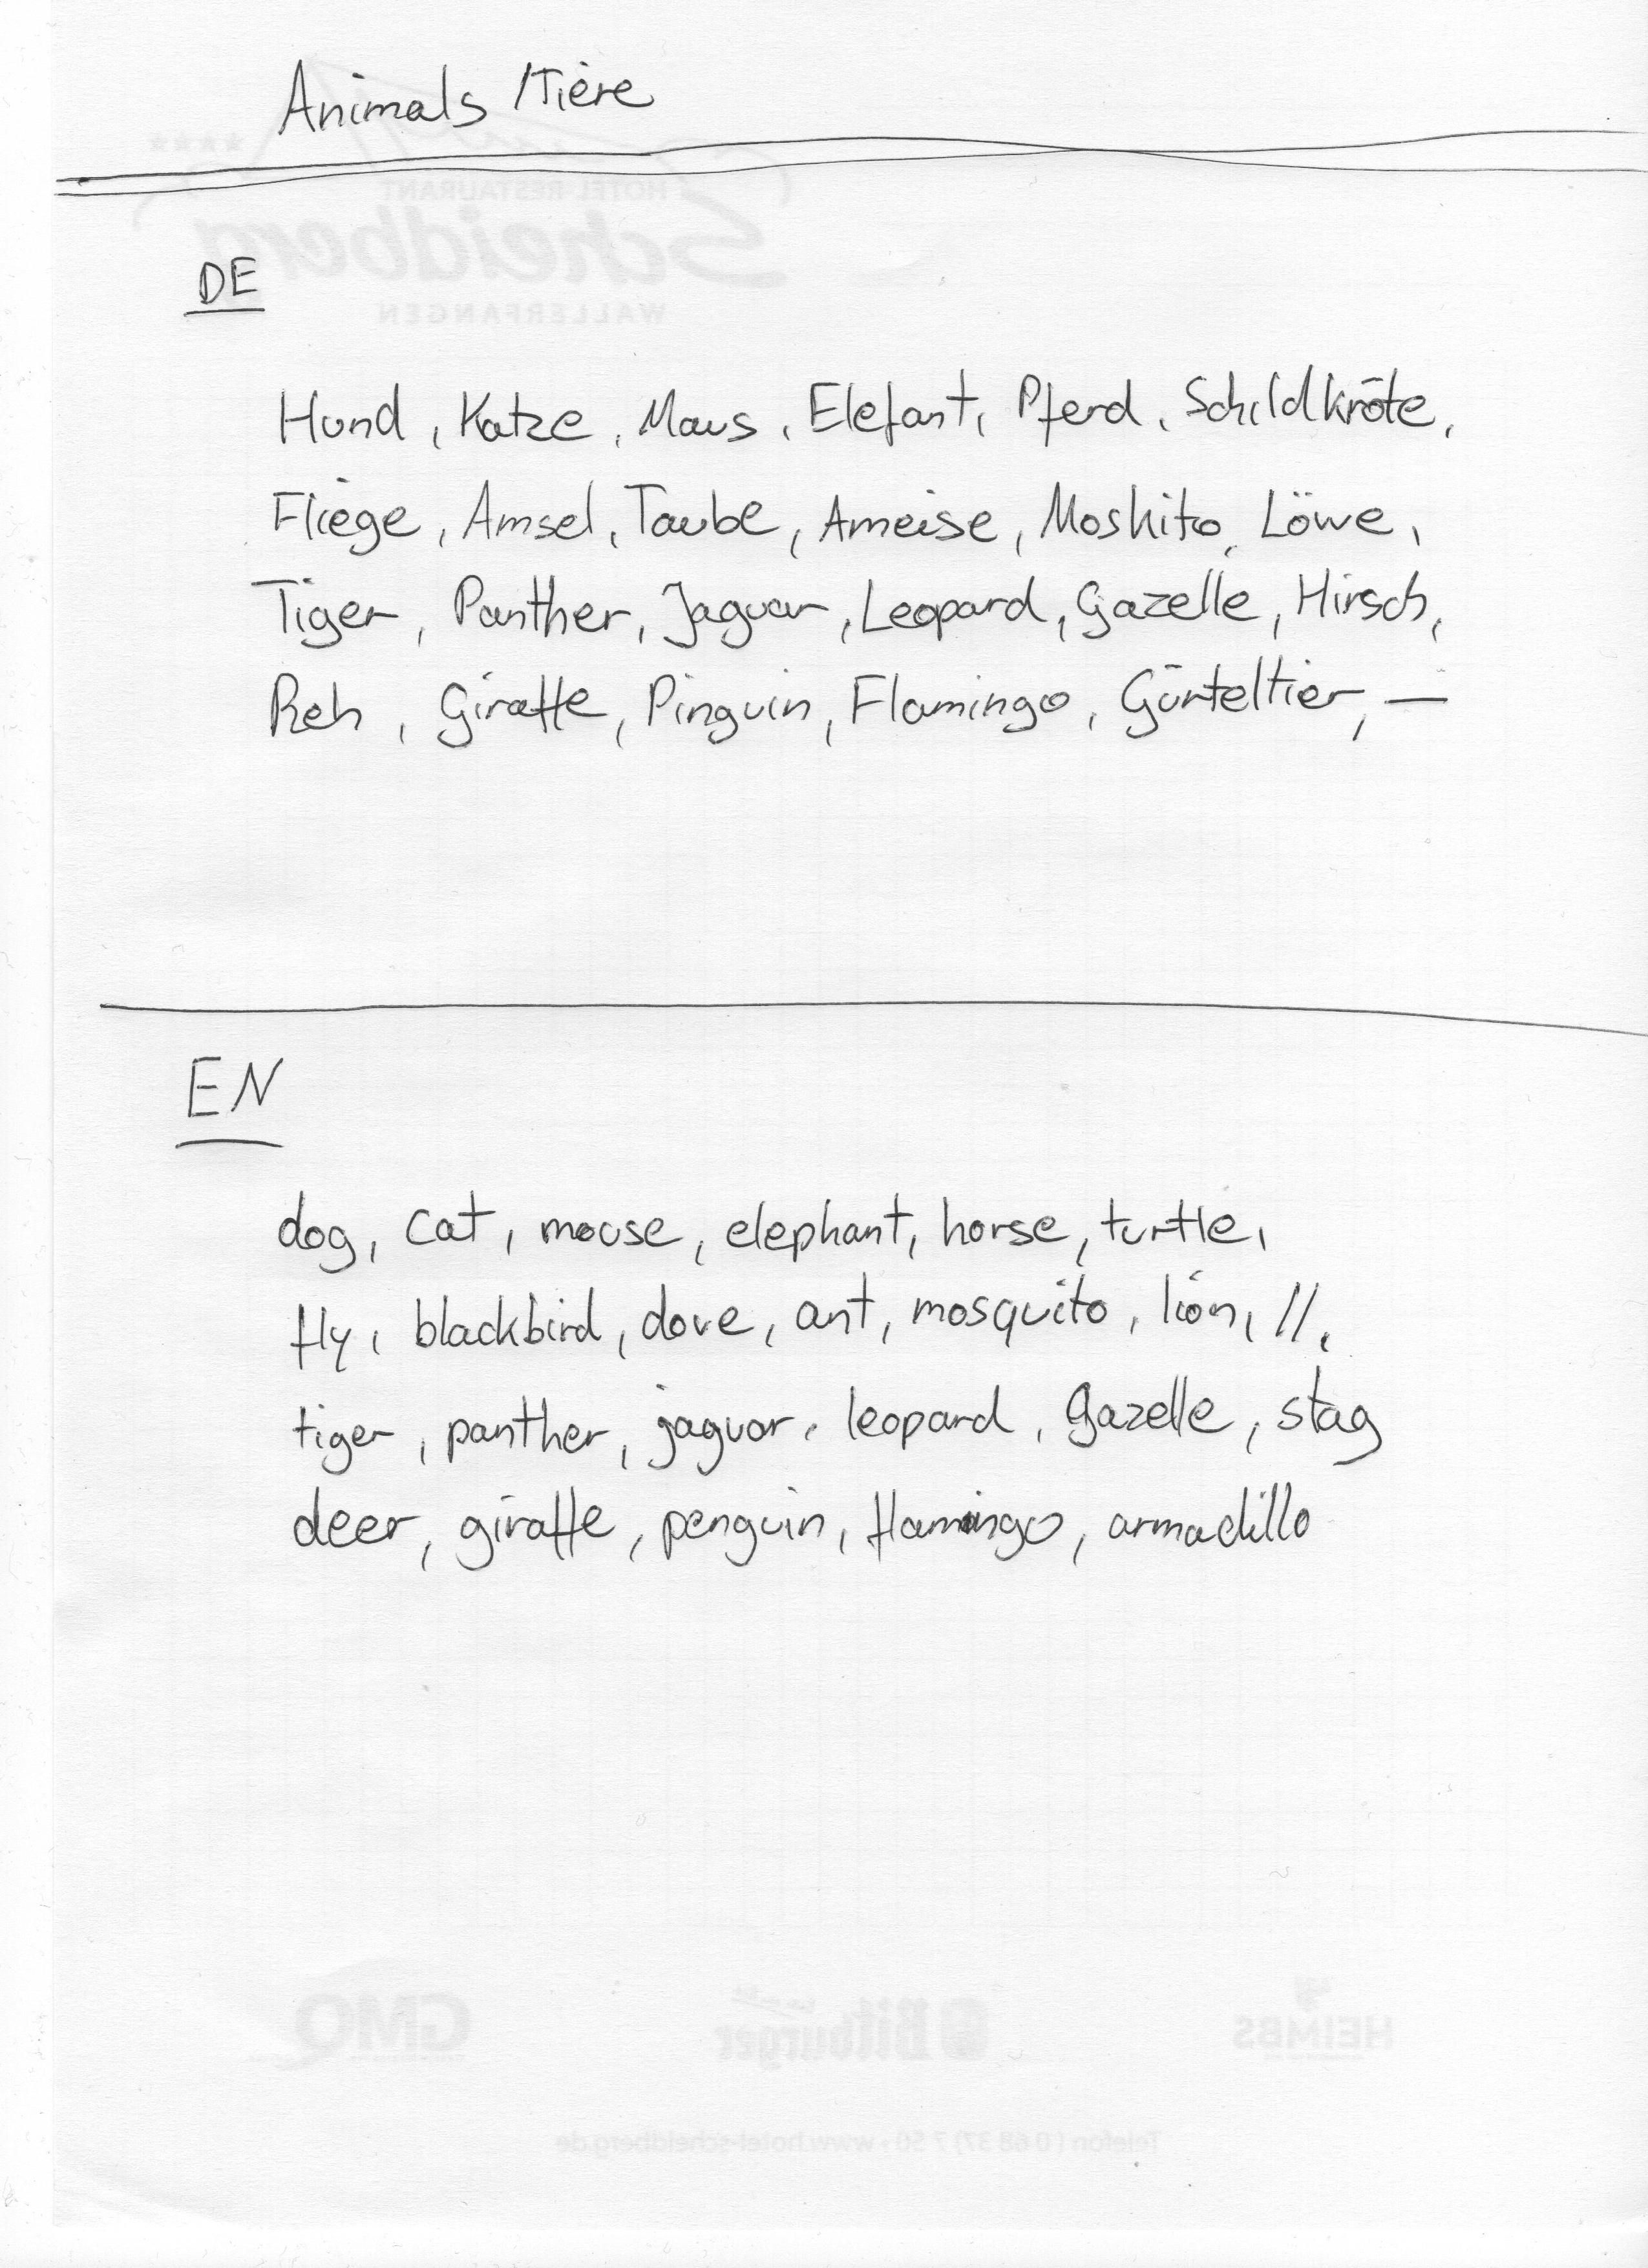 Animals / Tiere
DE
Hund, Katze, Maus, Elefant, Pferd, Schildkröte,
Fliege, Amsel, Taube, Ameise, Moskito, Löwe,
Tiger, Panther, Jaguar, Leopard, Gazelle, Hirsch,
Reh, Giraffe, Pinguin, Flamingo, Gürteltier, —
EN
dog, cat, mouse, elephant, horse, turtle,
fly, blackbird, dove, ant, mosquito, lion, //,
tiger, panther, jaguar, leopard, gazelle, stag
deer, giraffe, penguin, flamingo, armadillo
HOTEL RESTAURANT
Scheidberg
WALLERFANGEN
GMO
Bitburger
HEIMBS
Telefon ( 0 68 37) 7 50 · www.hotel-scheidberg.de